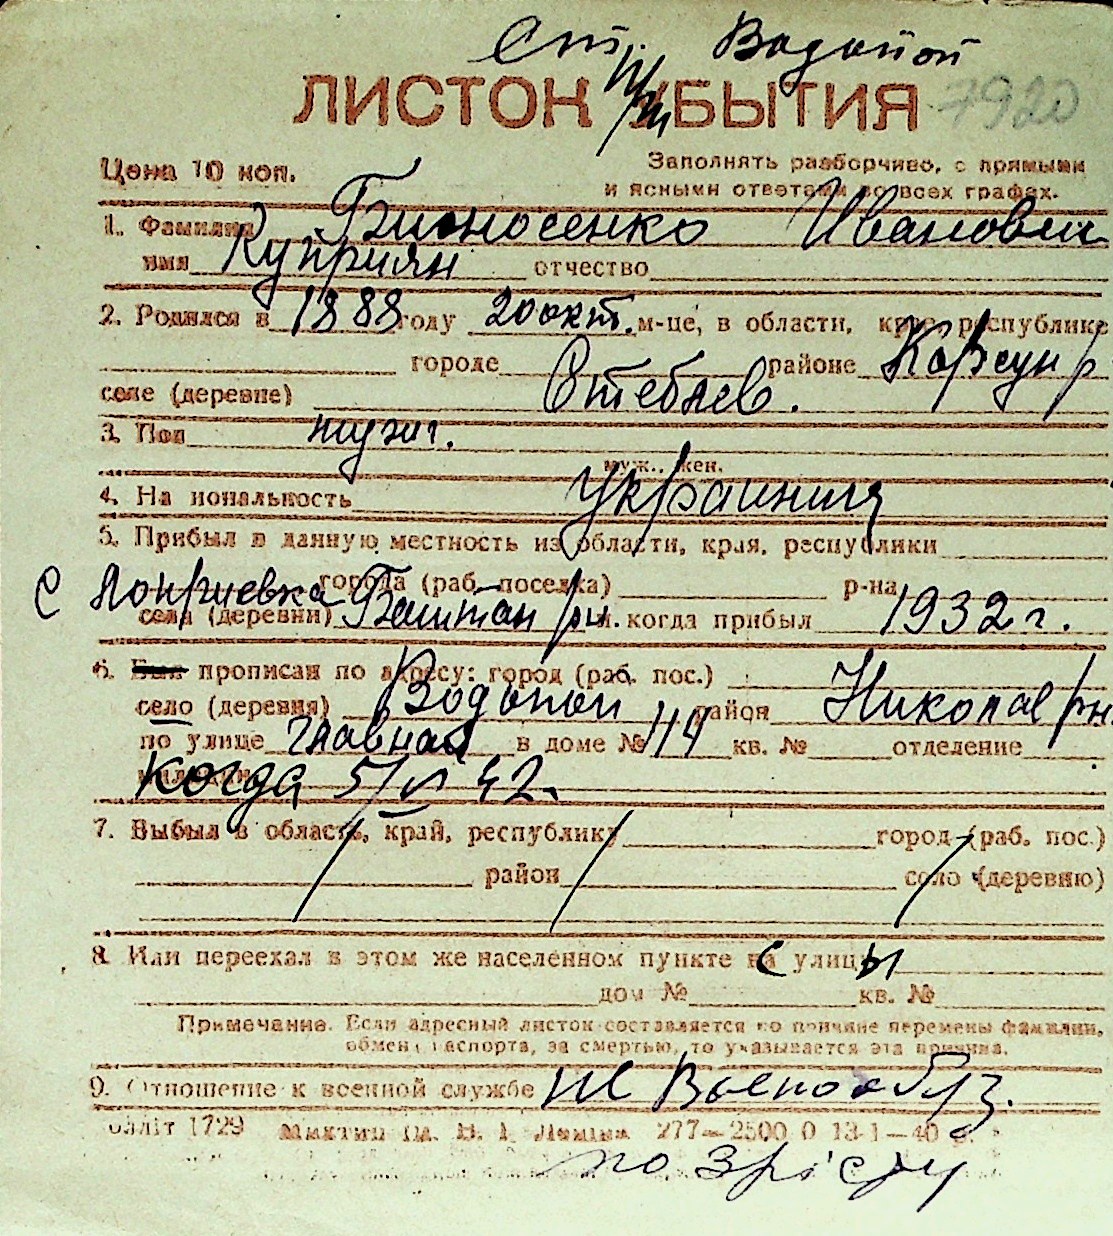 Ст. Водопой
ЛИСТОК УБЫТИЯ 7920
Цена 10 коп. Заполнять разборчиво, с прямыми
и ясными ответами во всех графах.
1. Фамилия Бшоносенко Иванович
имя Куприян отчество
2. Родился в 1888 году 20 окт. м-це, в области, крае, республике
городе районе Корсун р
селе (деревне) Стеблев.
3. Пол
муж., жен.
4. Национальность украинец
5. Прибыл в данную местность из области, края, республики
города (раб. поселка) р-на
с села (деревни) Баштан рн. когда прибыл 1932 г.
6. Был прописан по адресу: город (раб. пос.)
село (деревня) Водопой район Николаев рн.
по улице главная в доме № 114 кв. № отделение
милиции когда 5/VI 42.
7. Выбыл в область, край, республику город (раб. пос.)
район село (деревню)
8. Или переехал в этом же населенном пункте на с улицы
дом № кв. №
Примечание. Если адресный листок составляется по причине перемены фамилии,
обмена паспорта, за смертью, то указывается эта причина.
9. Отношение к военной службе не Военообяз.
облліт 1729 277—2500 0 13-1—40